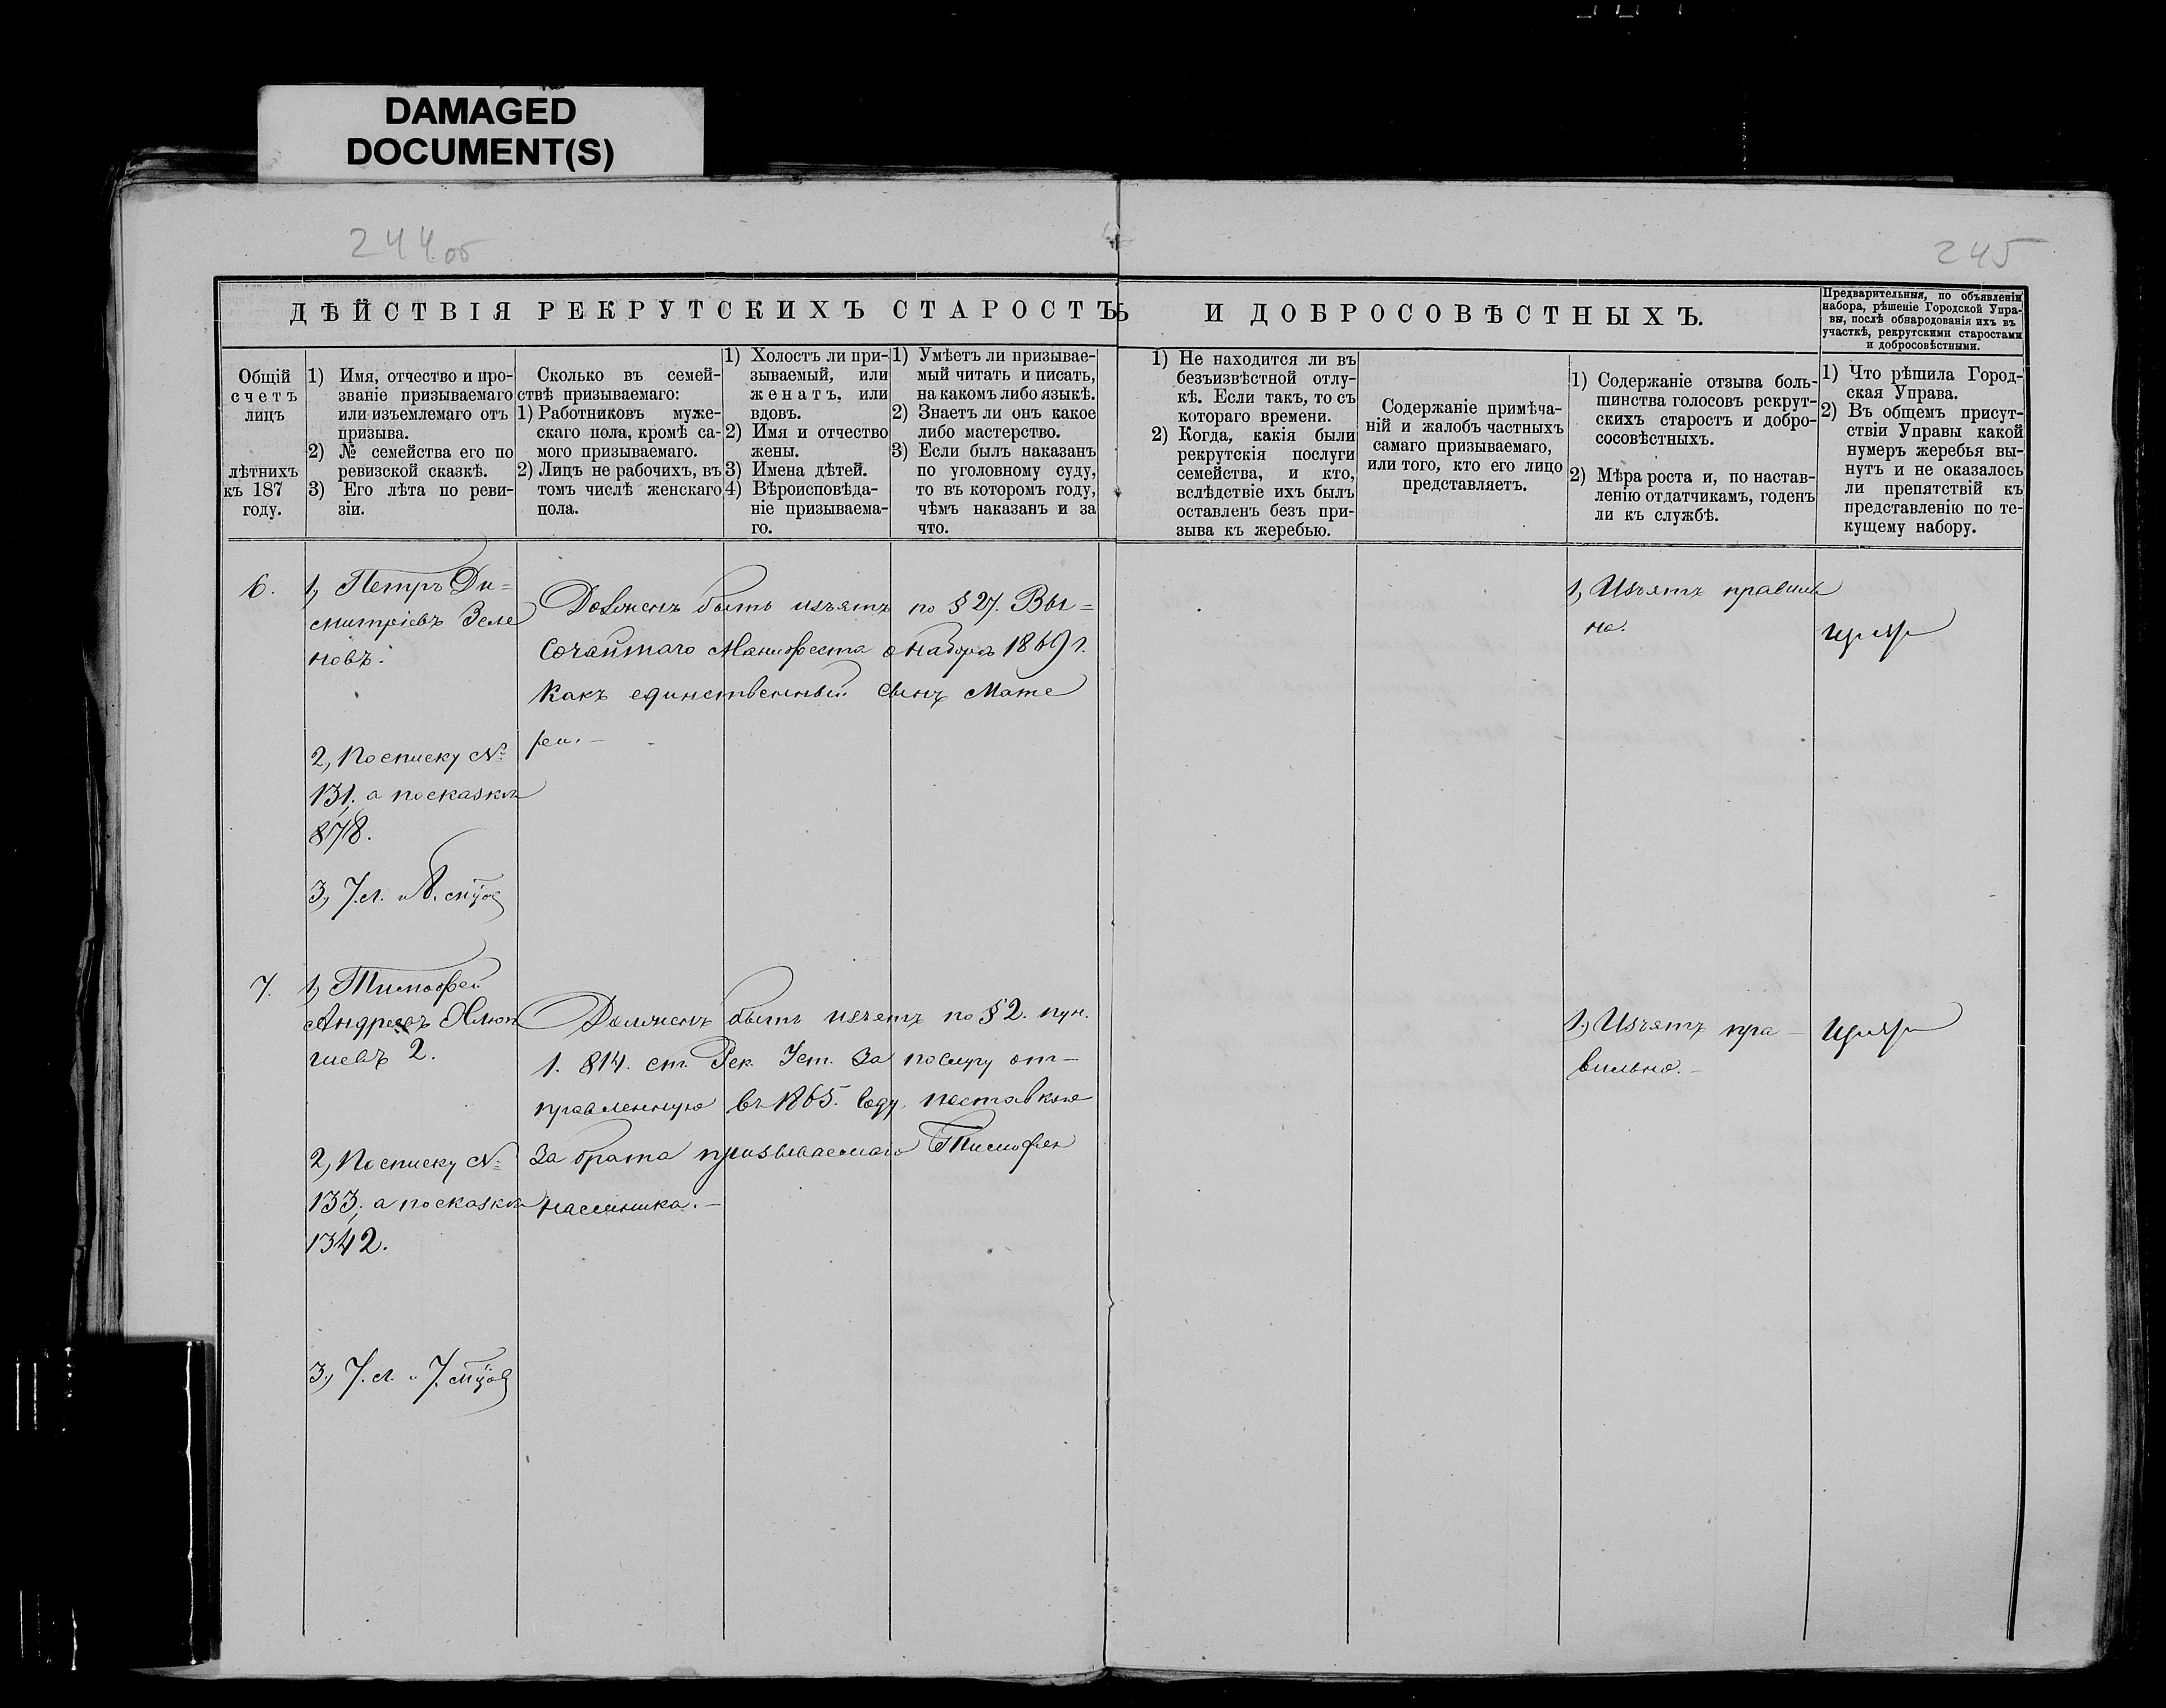 DAMAGED
DOCUMENT(S)
244об
245
ДѢЙСТВІЯ РЕКРУТСКИХЪ СТАРОСТЪ И ДОБРОСОВѢСТНЫХЪ.
Предварительныя, по объявленіи
набора, рѣшеніе Городской Упра-
вы, послѣ обнародованія ихъ въ
участкѣ, рекрутскими старостами
и добросовѣстными.
Общій
счетъ
лицъ
лѣтнихъ
къ 187
году.
1) Имя, отчество и про-
званіе призываемаго
или изъемлемаго отъ
призыва.
2) № семейства его по
ревизской сказкѣ.
3) Его лѣта по реви-
зіи.
Сколько въ семей-
ствѣ призываемаго:
1) Работниковъ муже-
скаго пола, кромѣ са-
мого призываемаго.
2) Лицъ не рабочихъ, въ
томъ числѣ женскаго
пола.
1) Холостъ ли при-
зываемый, или
женатъ, или
вдовъ.
2) Имя и отчество
жены.
3) Имена дѣтей.
4) Вѣроисповѣда-
ніе призываема-
го.
1) Умѣетъ ли призывае-
мый читать и писать,
на какомъ либо языкѣ.
2) Знаетъ ли онъ какое
либо мастерство.
3) Если былъ наказанъ
по уголовному суду,
то въ которомъ году,
чѣмъ наказанъ и за
что.
1) Не находится ли въ
безъизвѣстной отлу-
кѣ. Если такъ, то съ
котораго времени.
2) Когда, какія были
рекрутскія послуги
семейства, и кто,
вслѣдствіе ихъ былъ
оставленъ безъ при-
зыва къ жеребью.
Содержаніе примѣча-
ній и жалобъ частныхъ
самаго призываемаго,
или того, кто его лицо
представляетъ.
1) Содержаніе отзыва боль-
шинства голосовъ рекрут-
скихъ старостъ и добро-
сосовѣстныхъ.
2) Мѣра роста и, по настав-
ленію отдатчикамъ, годенъ
ли къ службѣ.
1) Что рѣшила Город-
ская Управа.
2) Въ общемъ присут-
ствіи Управы какой
нумеръ жеребья вы-
нутъ и не оказалось
ли препятствій къ
представленію по те-
кущему набору.
6.
1, Петръ Ди=
митріевъ Зеле
новъ.
2, По списку №
131. а по сказкѣ
878.
3, 7.л.
Долженъ быть изъятъ по § 27. Вы=
сочайшаго Манифеста о наборѣ 1869 г.
какъ единственный сынъ мате
ри. —
1, Изъятъ правиль
но.
7.
1, Тимофей
Андреевъ
2.
2, По списку №
133; а по сказкѣ
1342.
3, 7. л. и 7.
Долженъ быть изъятъ по § 2. пун.
1. 814. ст. Рек. Уст. за послугу от—
правленную въ 1865. году, поставкою
за брата призываемаго Тимофея
наемника. —
1, Изъятъ пра—
вильно. —